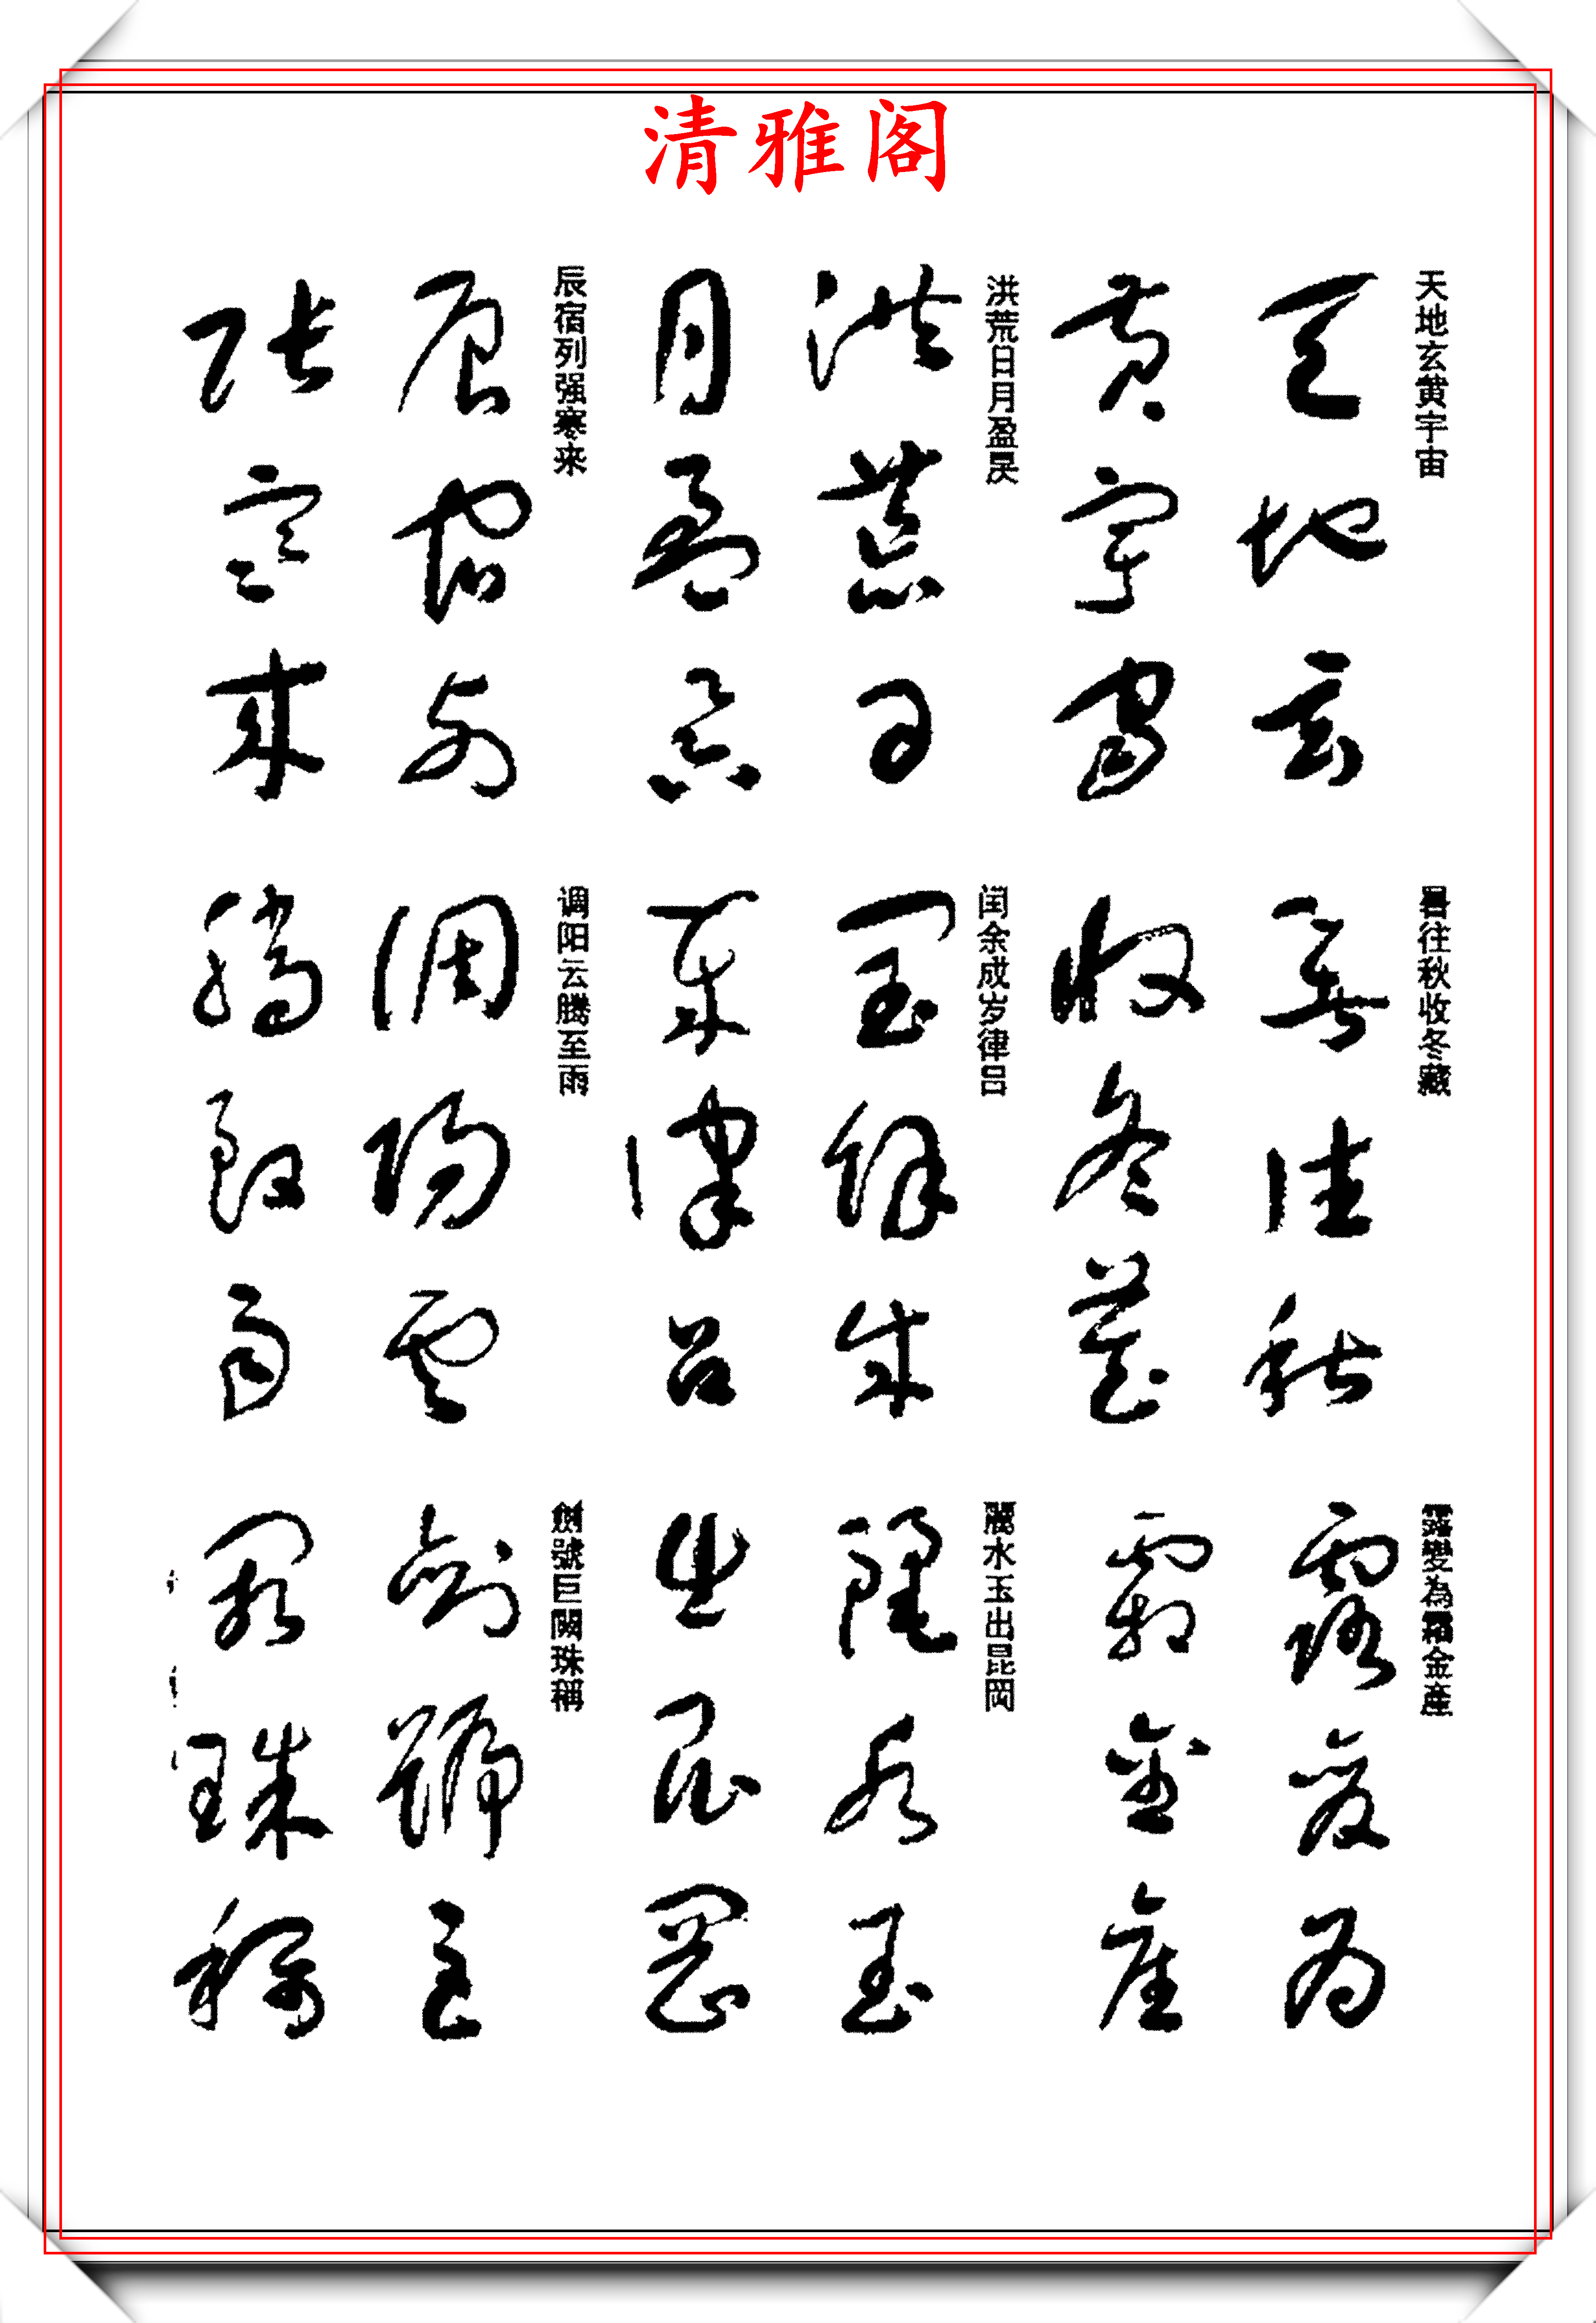 清雅阁
天地玄黄宇宙
天地玄
黄宇宙
洪荒日月盈昃
洪荒日
月盈昃
辰宿列强寒来
辰宿列
张寒来
暑往秋收冬藏
暑往秋
收冬藏
闰余成岁律吕
闰余成
岁律吕
调阳云腾至雨
调阳云
腾致雨
露變為霜金產
露變為
霜金產
麗水玉出昆岡
麗水玉
出昆岡
劍號巨闕珠稱
劍號巨
闕珠稱